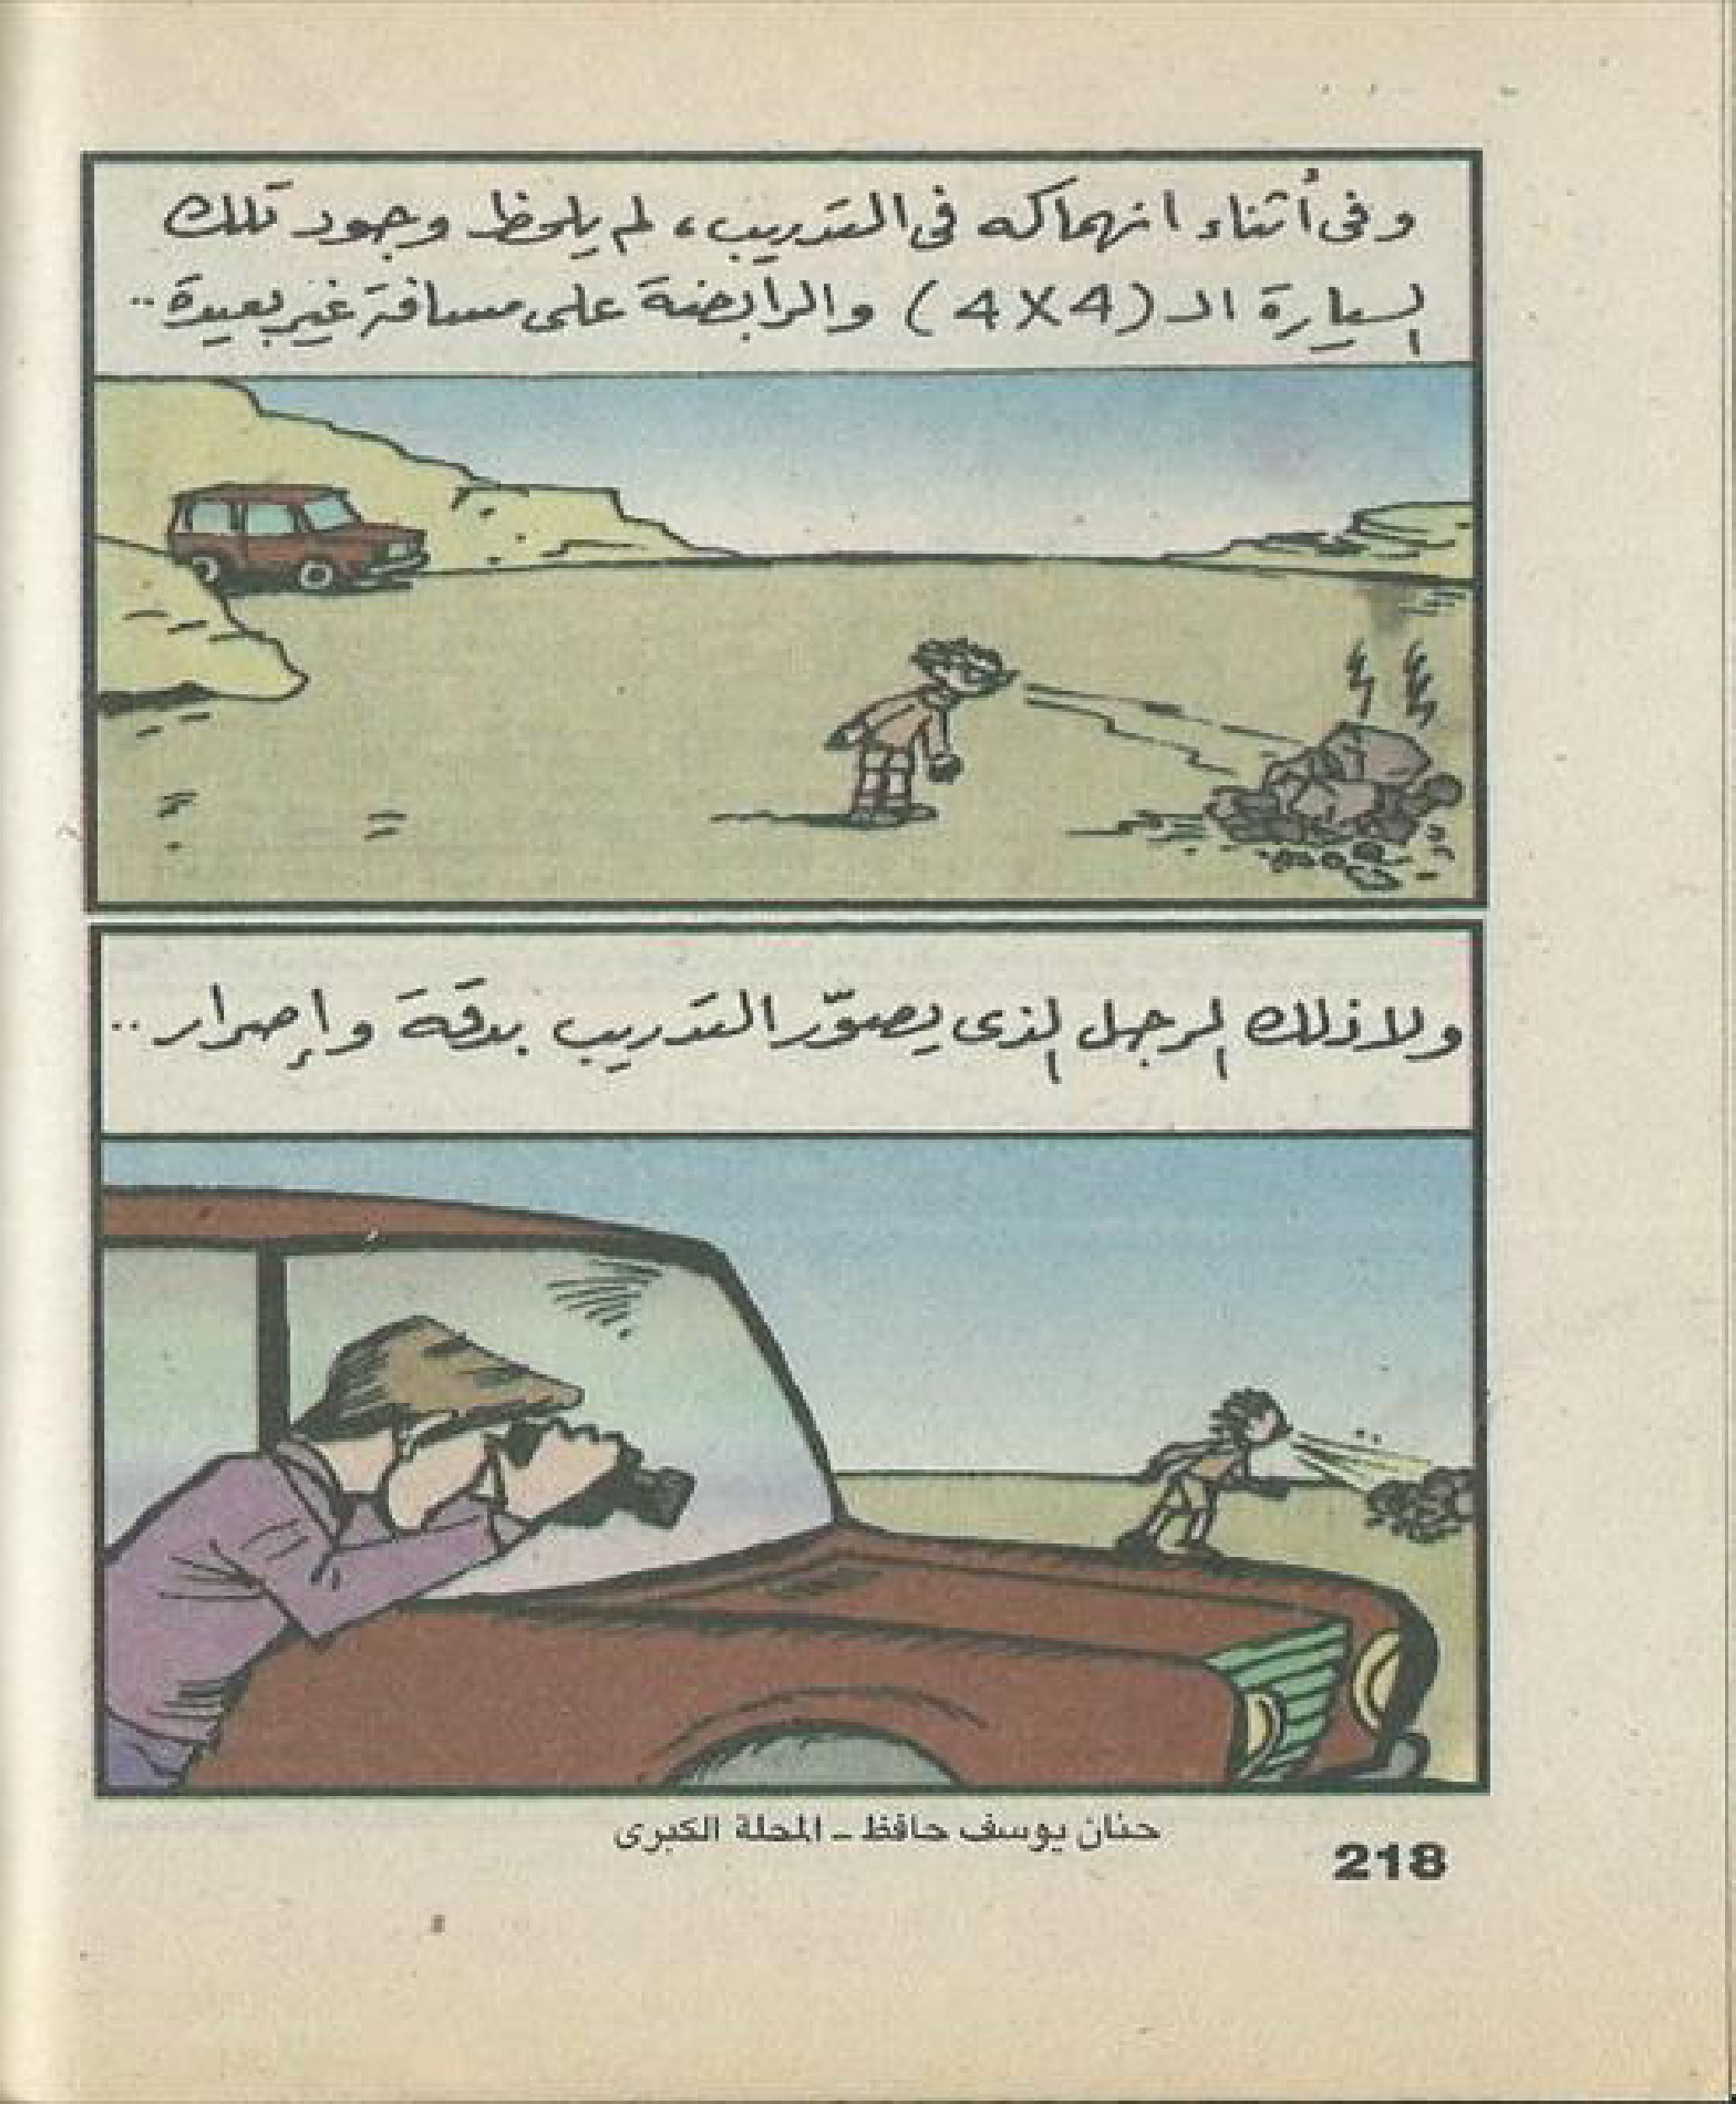 وفى أثناء انهماكه فى التدريب، لم يلحظ وجود تلك
السيارة الـ (4X4) والرابضة على مسافة غير بعيدة..
ولا ذلك الرجل الذى يصوّر التدريب بدقة وإصرار..
حنان يوسف حافظ - المحلة الكبرى
218